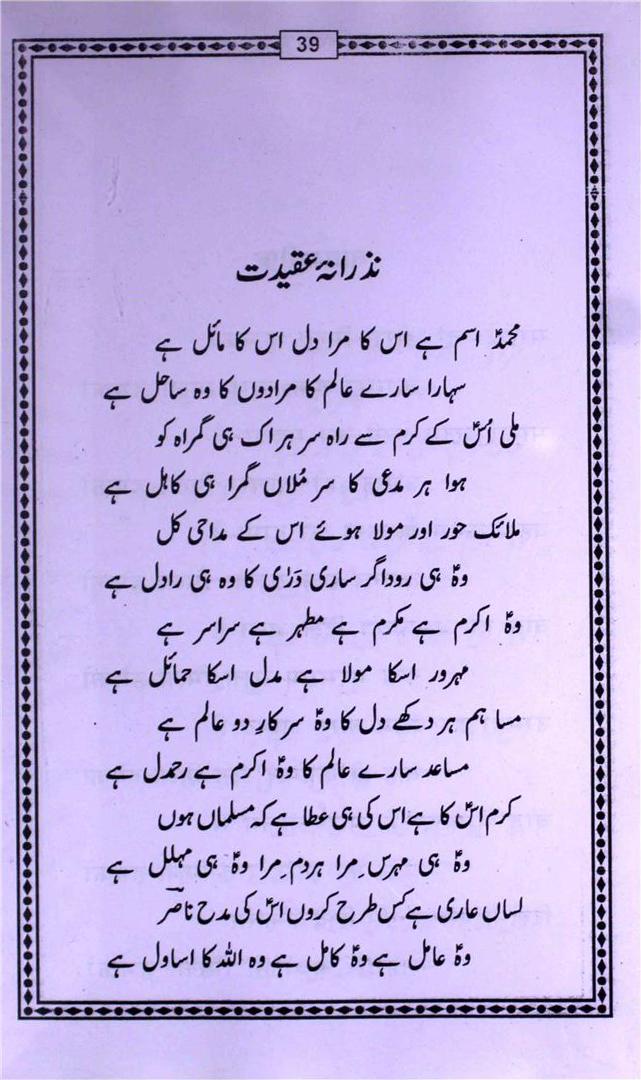 39
نذرانۂ عقیدت
محمدؐ اسم ہے اس کا مرا دل اس کا مائل ہے
سہارا سارے عالم کا مرادوں کا وہ ساحل ہے
ملی اُسؐ کے کرم سے راہ سر ہر اک ہی گمراہ کو
ہوا ہر مدعی کا سر مُلاں گمرا ہی کاہل ہے
ملائک حور اور مولا ہوئے اس کے مداحی کل
وہؐ ہی روداگر ساری دَرٰی کا وہ ہی رادل ہے
وہؐ اکرم ہے مکرم ہے مطہر ہے سراسر ہے
مہرور اسکا مولا ہے مدل اسکا حمائل ہے
مسا ہم ہر دکھے دل کا وہؐ سرکارِ دو عالم ہے
مساعد سارے عالم کا وہؐ اکرم ہے رحمدل ہے
کرم اسؐ کا ہے اس کی ہی عطا ہے کہ مسلماں ہوں
وہؐ ہی مہرس ِمرا ہردم ِمرا وہؐ ہی مہلل ہے
لساں عاری ہے کس طرح کروں اسؐ کی مدح ناصرؔ
وہؐ عامل ہے وہؐ کامل ہے وہ اللہ کا اساول ہے